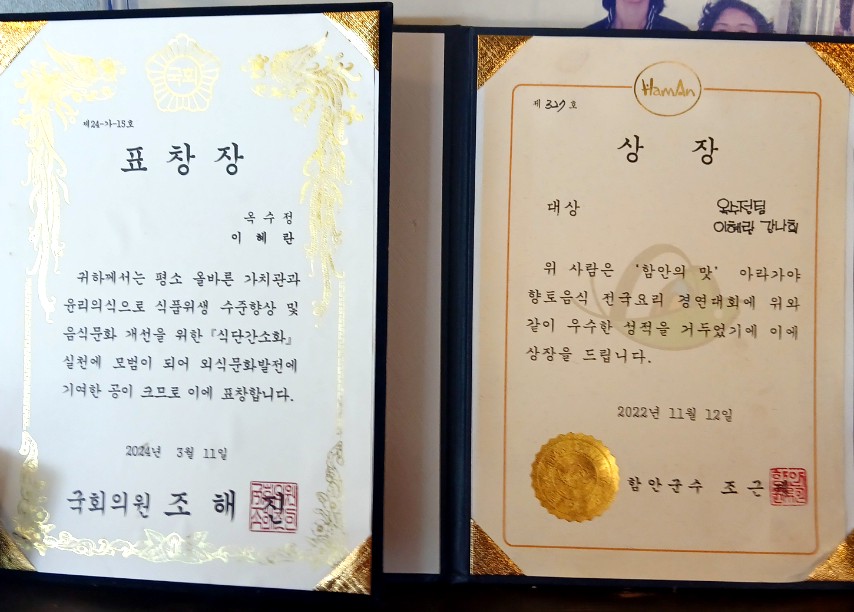 국회
제24-가-15호
표창장
옥수정
이혜란
귀하께서는 평소 올바른 가치관과
윤리의식으로 식품위생 수준향상 및
음식문화 개선을 위한 『식단간소화』
실천에 모범이 되어 외식문화발전에
기여한 공이 크므로 이에 표창합니다.
2024년 3월 11일
국회의원 조해진
HamAn
제 327 호
상장
대상
옥수정팀
이혜란 강나희
위 사람은 '함안의 맛' 아라가야
향토음식 전국요리 경연대회에 위와
같이 우수한 성적을 거두었기에 이에
상장을 드립니다.
2022년 11월 12일
함안군수 조근